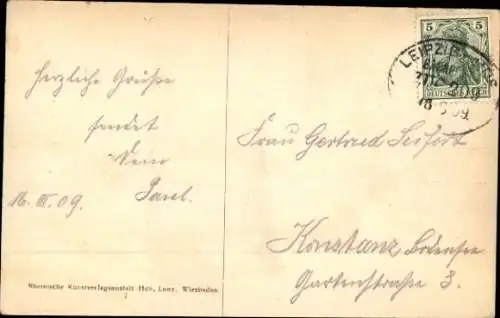 Herzliche Grüße
sendet
Dein
Paul.
16. III. 09.
Frau Gertrud Seifert
Konstanz Bodensee
Gartenstraße 3.
5 5
DEUTSCHES REICH
LEIPZIG
Rheinische Kunstverlagsanstalt Hch. Lenz, Wiesbaden